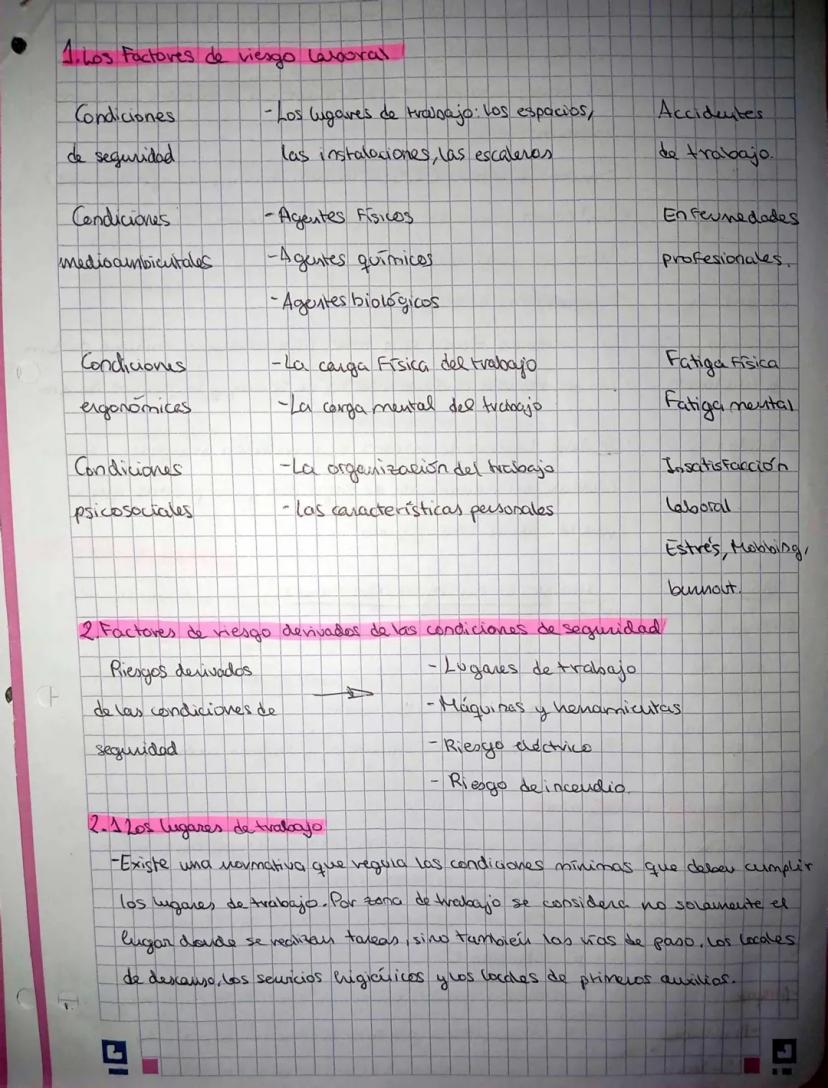 1. Los Factores de riesgo laboral
Condiciones - Los lugares de trabajo: los espacios, Accidentes
de seguridad las instalaciones, las escaleras de trabajo.
Condiciones - Agentes Físicos Enfermedades
medioambientales - Agentes químicos profesionales.
- Agentes biológicos
Condiciones - La carga Física del trabajo Fatiga Física
ergonómicas - La carga mental del trabajo Fatiga mental
Condiciones - La organización del trabajo Insatisfacción
psicosociales - Las características personales laboral
Estrés, Mobbing,
burnout.
2. Factores de riesgo derivados de las condiciones de seguridad
Riesgos derivados - Lugares de trabajo
de las condiciones de → - Máquinas y herramientas
seguridad - Riesgo eléctrico
- Riesgo de incendio.
2.1 Los lugares de trabajo
- Existe una normativa que regula las condiciones mínimas que deben cumplir
los lugares de trabajo. Por zona de trabajo se considera no solamente el
lugar donde se realizan tareas, sino también las vías de paso, los locales
de descanso, los servicios higiénicos y los locales de primeros auxilios.